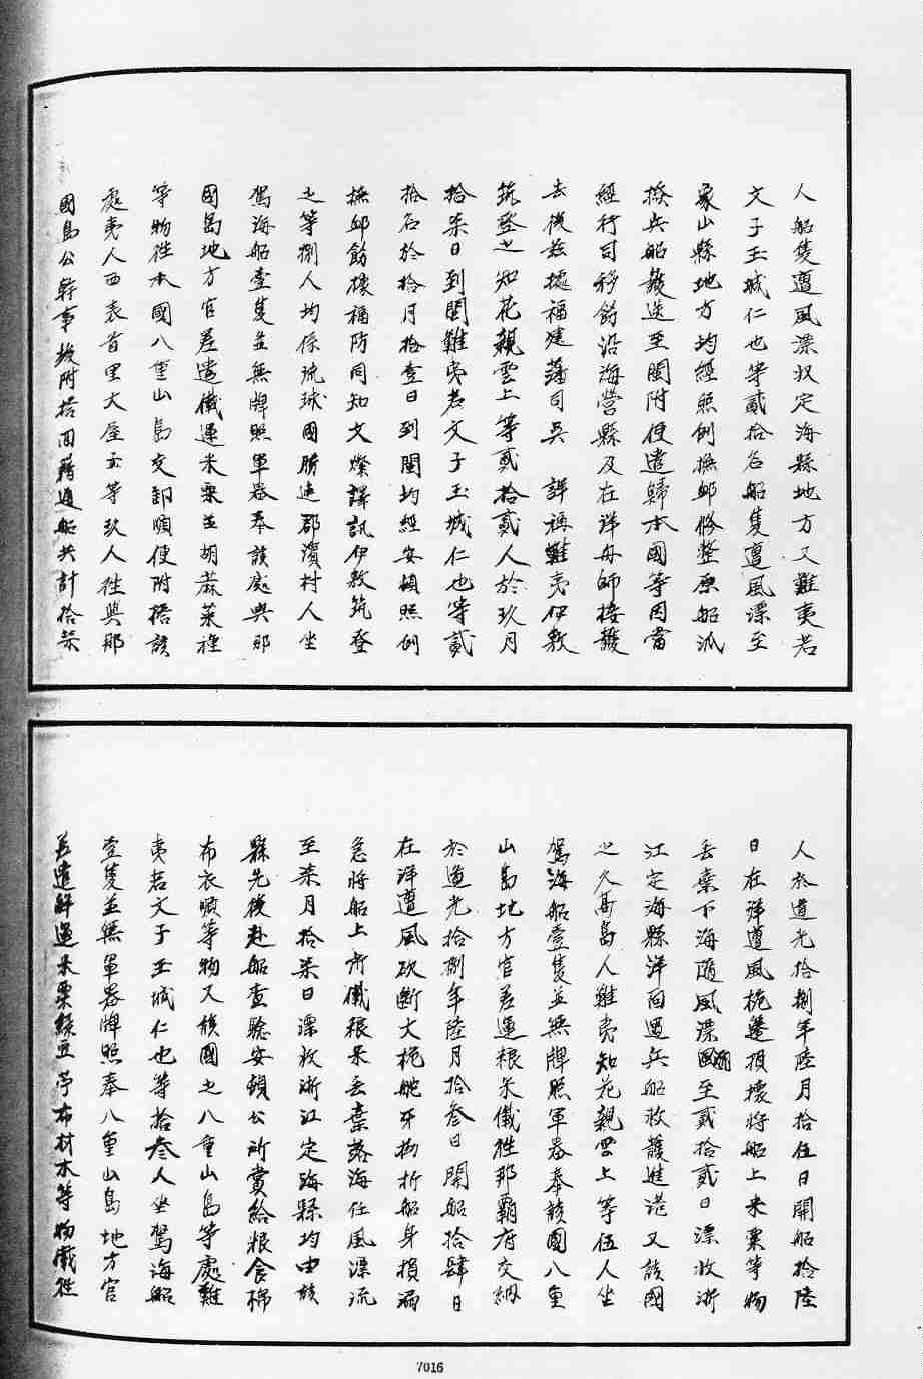 人船隻遭風漂收定海縣地方又難夷若
文子玉城仁也等貳拾名船隻遭風漂至
象山縣地方均經照例撫卹修整原船派
撥兵船護送至閩附便遣歸本國等因當
經行司移飭沿海營縣及在洋舟師接護
去後茲據福建藩司吳 詳稱難夷伊敷
筑登之知花親雲上等貳拾貳人於玖月
拾柒日到閩難夷若文子玉城仁也等貳
拾名於拾月拾壹日到閩均經安頓照例
撫卹飭據福防同知文燦譯訊伊敷筑登
之等捌人均係流球國勝連郡濱村人坐
駕海船壹隻並無牌照軍器奉該處與那
國島地方官差遣儎運米粟並胡蔴菜種
等物往本國八重山島交卸順便附搭該
處夷人西表首里大屋子等玖人往與那
國島公幹事竣附搭回籍通船共計拾柒
人於道光拾捌年陸月拾伍日開船拾陸
日在洋遭風桅篷損壞將船上米粟等物
丟棄下海隨風漂至貳拾貳日漂收浙
江定海縣洋面遇兵船救護進港又該國
之久髙島人難夷知花親雲上等伍人坐
駕海船壹隻並無牌照軍器奉該國八重
山島地方官差運粮米儎往那霸府交納
於道光拾捌年陸月拾叁日開船拾肆日
在洋遭風砍斷大桅舵牙拗折船身損漏
急將船上所儎粮米丟棄落海任風漂流
至柒月拾柒日漂收浙江定海縣均由該
縣先後赴船查驗安頓公所賞給粮食棉
布衣順等物又該國之八重山島等處難
夷若文子玉城仁也等拾叁人坐駕海船
壹隻並無軍器牌照奉八重山島地方官
差遣解運米粟綠豆苧布材木等物儎往
7016